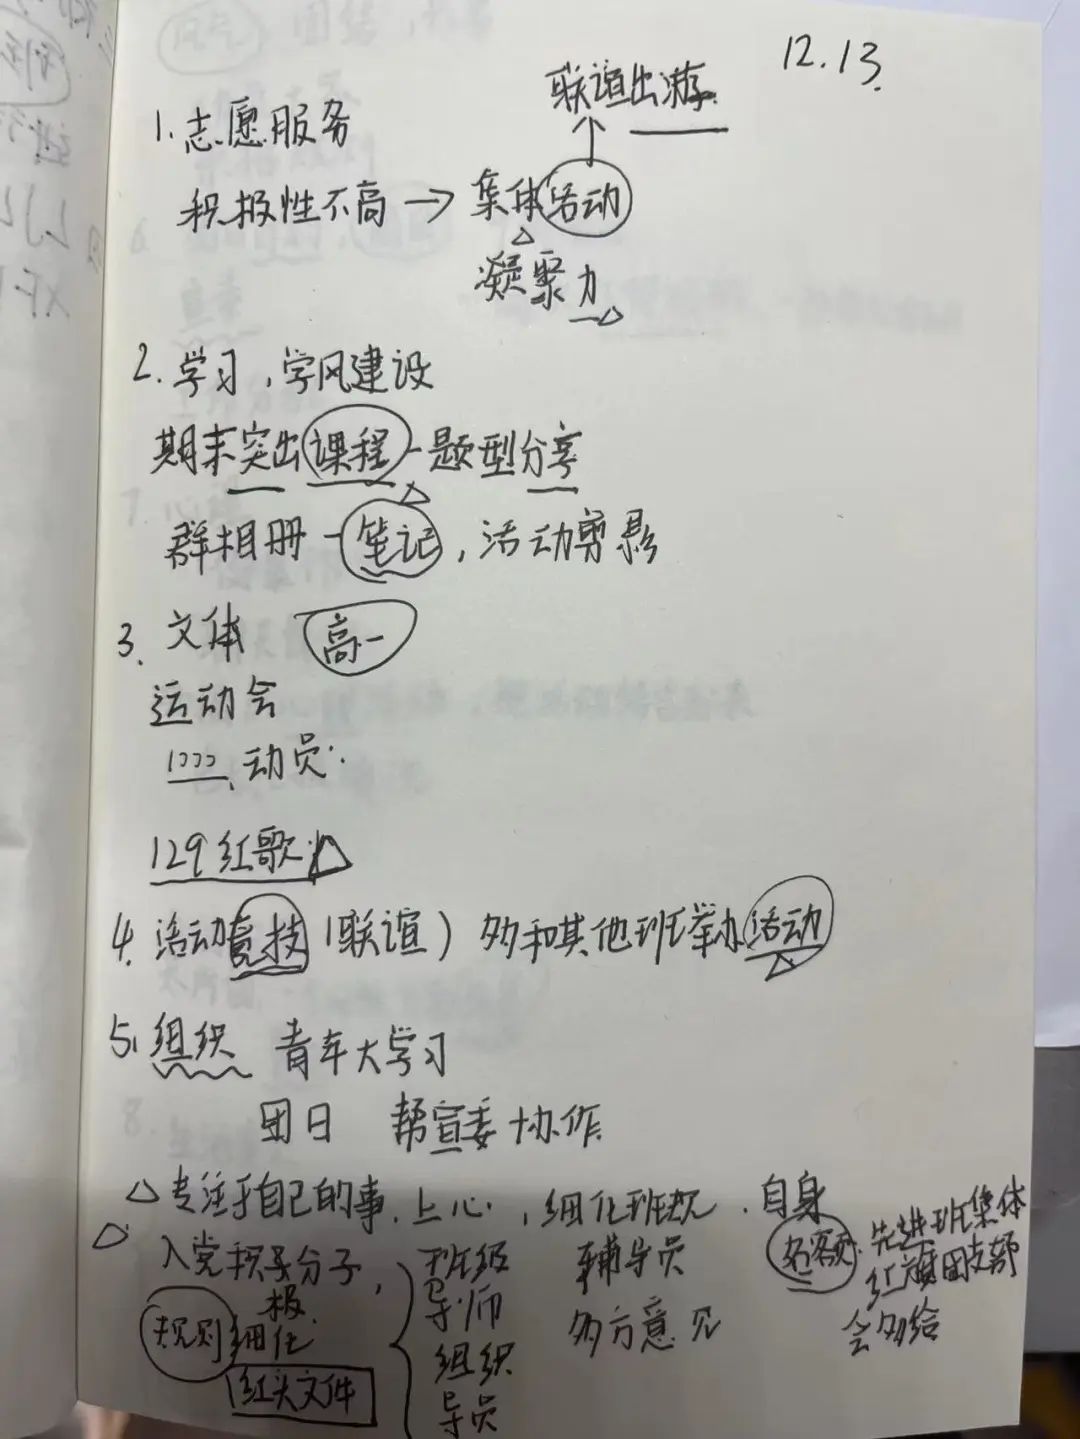 12.13
联谊出游
1. 志愿服务
积极性不高 → 集体活动
凝聚力
2. 学习, 学风建设
期末突出课程-题型分享
群相册-笔记, 活动剪影
3. 文体 高一
运动会
动员.
129红歌
4. 活动竞技(联谊) 多和其他班举办活动
5. 组织 青年大学习
团日 帮宣委协作
专注于自己的事. 上心, 细化班规. 自身
入党积极分子,
规则细化
红头文件
班级
导师
组织
导员
辅导员
多方意见
名额. 先进班集体
红旗团支部
会多给